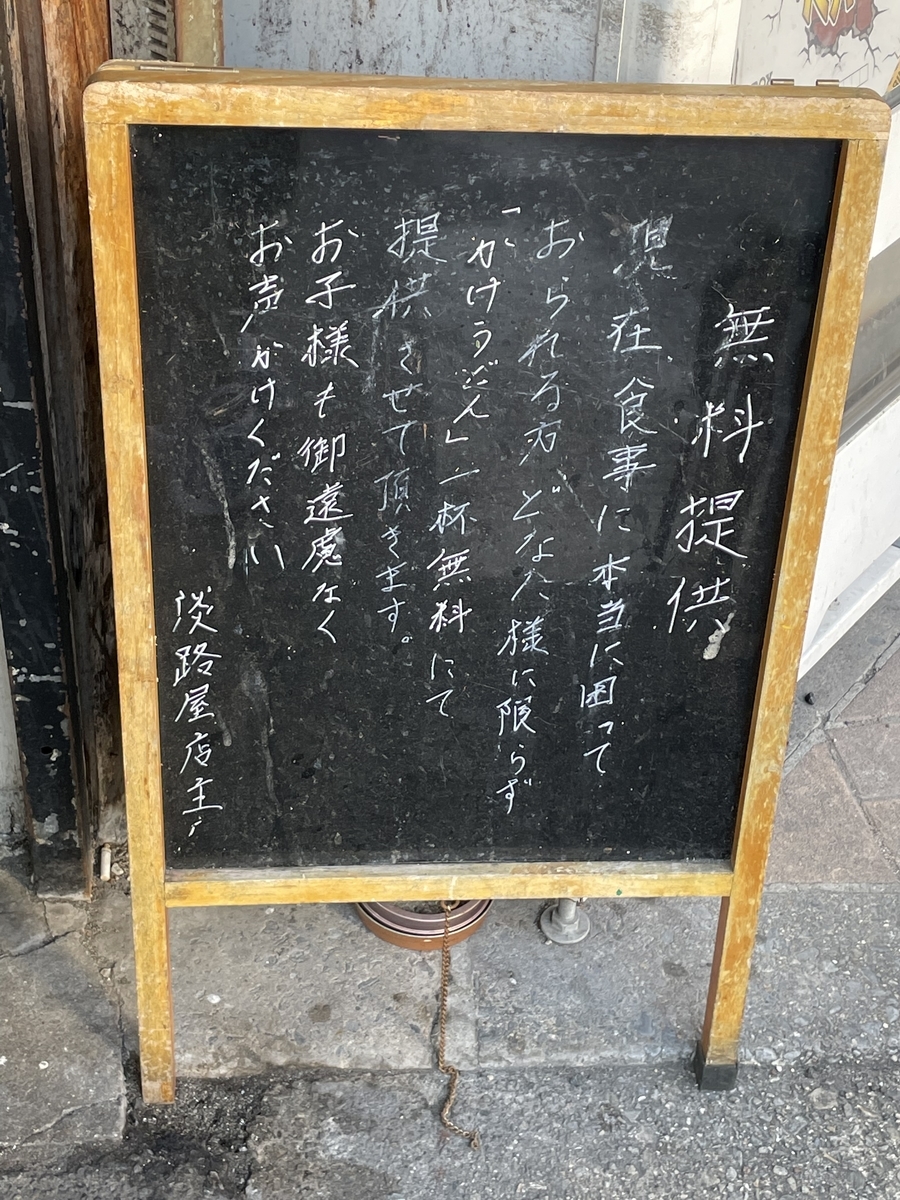 無料提供
現在食事に本当に困って
おられる方どなた様に限らず
「かけうどん」一杯無料にて
提供させて頂きます。
お子様も御遠慮なく
お声かけください
淡路屋店主